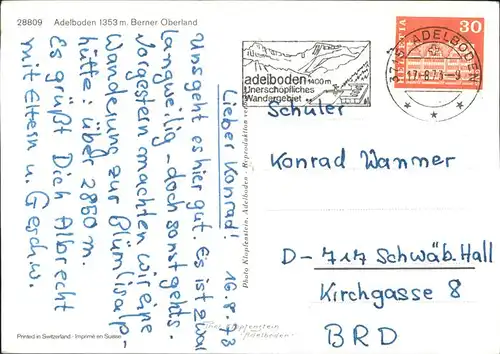 28809 Adelboden 1353 m. Berner Oberland
Lieber Konrad! 16.8.73
Uns geht es hier gut. Es ist zwar
langweilig - doch sonst gehts.
Vorgestern machten wir eine
Wanderung zur Blümlisalp-
hütte: über 2800 m.
Es grüßt Dich Albrecht
mit Eltern u. Geschw.
Printed in Switzerland - Imprimé en Suisse
Photo Klopfenstein, Adelboden - Reproduktion
adelboden 1400 m
Unerschöpfliches
Wandergebiet
3715 ADELBODEN
HELVETIA 30
Schüler
Konrad Wanner
D-717 Schwäb. Hall
Kirchgasse 8
BRD